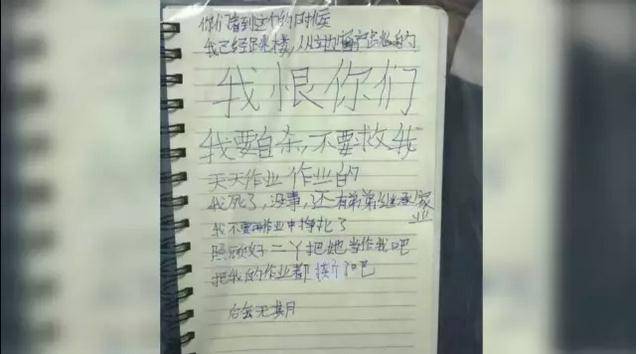 你们看到这个的时候
我已经跳楼,从这边窗户出去的
我恨你们
我要自杀,不要救我
天天作业作业的
我死了,没事,还有弟弟继承家业
我不要再作业中挣扎了
照顾好二丫把她当作我吧
把我的作业都撕了吧
后会无期月